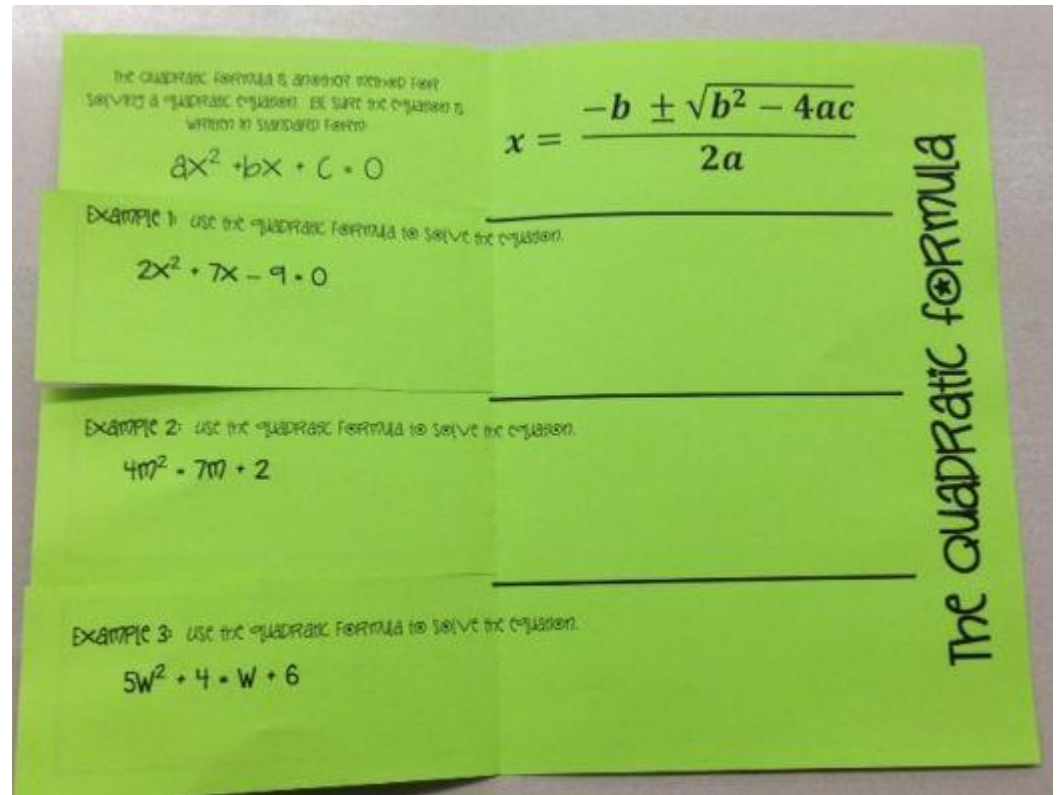 The quadratic formula is another method for
solving a quadratic equation. Be sure the equation is
written in standard form:
ax² + bx + c = 0
x = \frac{-b ± \sqrt{b² − 4ac}}{2a}
Example 1: Use the quadratic formula to solve the equation.
2x² + 7x − 9 = 0
Example 2: Use the quadratic formula to solve the equation.
4m² = 7m + 2
Example 3: Use the quadratic formula to solve the equation.
5w² + 4 = w + 6
The quadratic formula